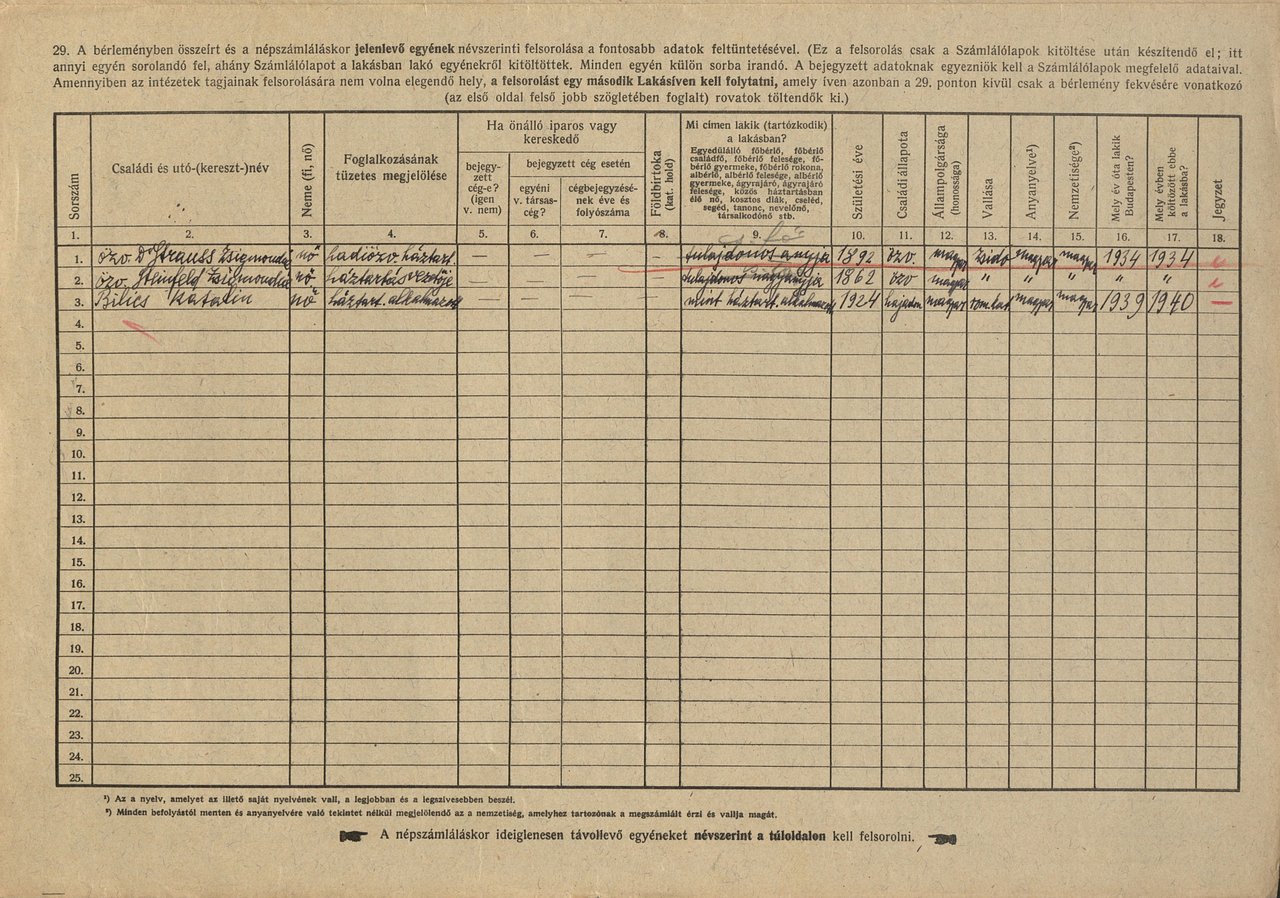 29. A bérleményben összeírt és a népszámláláskor jelenlevő egyének névszerinti felsorolása a fontosabb adatok feltüntetésével. (Ez a felsorolás csak a Számlálólapok kitöltése után készítendő el; itt
annyi egyén sorolandó fel, ahány Számlálólapot a lakásban lakó egyénekről kitöltöttek. Minden egyén külön sorba irandó. A bejegyzett adatoknak egyezniök kell a Számlálólapok megfelelő adataival.
Amennyiben az intézetek tagjainak felsorolására nem volna elegendő hely, a felsorolást egy második Lakásíven kell folytatni, amely íven azonban a 29. ponton kívül csak a bérlemény fekvésére vonatkozó
(az első oldal felső jobb szögletében foglalt) rovatok töltendők ki.)
Sorszám
Családi és utó-(kereszt-)név
Neme (fi, nő)
Foglalkozásának
tüzetes megjelölése
Ha önálló iparos vagy
kereskedő
bejegy-
zett
cég-e?
(igen
v. nem)
bejegyzett cég esetén
egyéni
v. társas-
cég?
cégbejegyzésé-
nek éve és
folyószáma
Földbirtoka
(kat. hold)
Mi címen lakik (tartózkodik)
a lakásban?
Egyedülálló főbérlő, főbérlő
családfő, főbérlő felesége, fő-
bérlő gyermeke, főbérlő rokona,
albérlő, albérlő felesége, albérlő
gyermeke, ágyrajáró, ágyrajáró
felesége, közös háztartásban
élő nő, kosztos diák, cseléd,
segéd, tanonc, nevelőnő,
társalkodónő stb.
Születési éve
Családi állapota
Állampolgársága
(honossága)
Vallása
Anyanyelve¹)
Nemzetisége²)
Mely év óta lakik
Budapesten?
Mely évben
költözött ebbe
a lakásba?
Jegyzet
1. 2. 3. 4. 5. 6. 7. 8. 9. 10. 11. 12. 13. 14. 15. 16. 17. 18.
1. özv. Dr Strauss Zsigmondné nő hadiözv. háztart. — — — — tulajdonos anyja 1892 özv. magyar zsidó magyar magyar 1934 1934
2. özv. Steinfeld Zsigmondné nő háztartás vezetője — — — tulajdonos nagyanyja 1862 özv magyar " " " " "
3. Bilics Katalin nő háztart. alkalmazott — — — — mint háztart. alkalmazott 1924 hajadon magyar rom. kat. magyar magyar 1939 1940 —
4.
5.
6.
7.
8.
9.
10.
11.
12.
13.
14.
15.
16.
17.
18.
19.
20.
21.
22.
23.
24.
25.
¹) Az a nyelv, amelyet az illető saját nyelvének vall, a legjobban és a legszívesebben beszél.
²) Minden befolyástól menten és anyanyelvére való tekintet nélkül megjelölendő az a nemzetiség, amelyhez tartozónak a megszámlált érzi és vallja magát.
A népszámláláskor ideiglenesen távollevő egyéneket névszerint a túloldalon kell felsorolni.